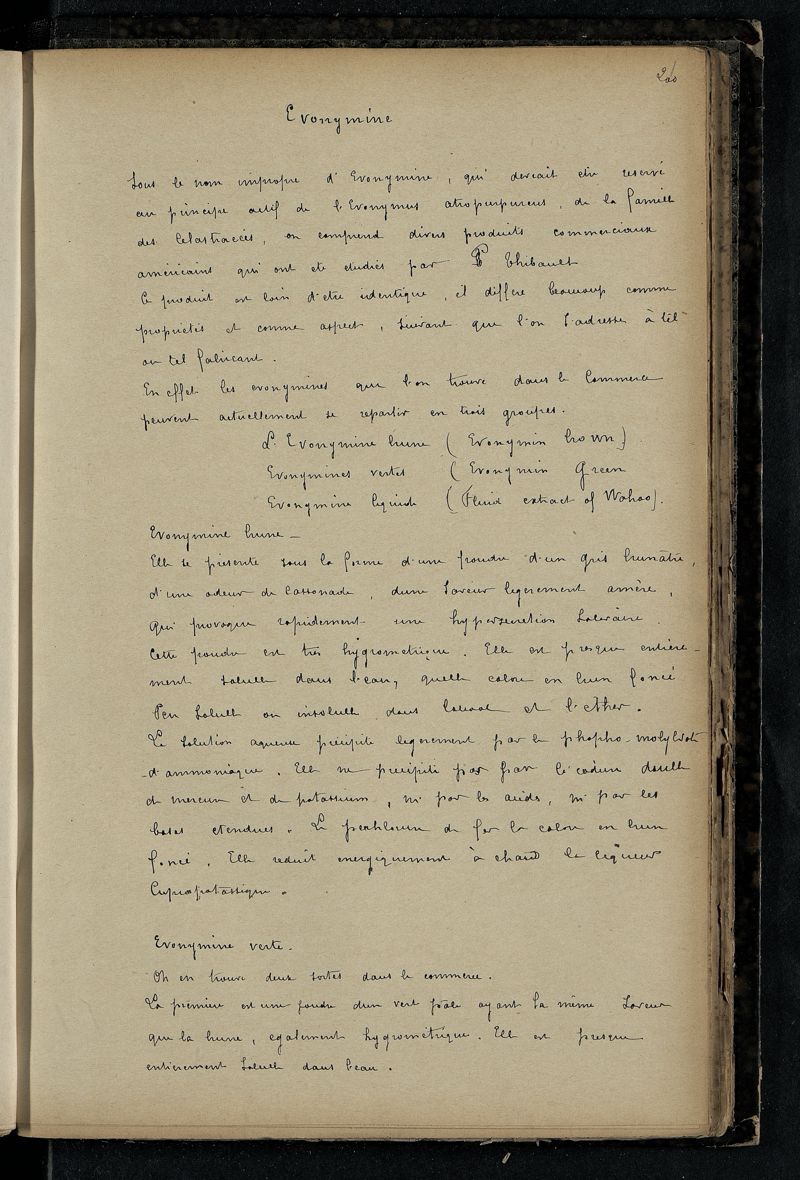 200
Evonymine
Sous le nom impropre d'Evonymine, qui devrait être reservé
au principe actif de l'Evonymus atropurpureus, de la famille
des Celastracées, on comprend divers produits commerciaux
américains qui ont ete etudiés par P Thibault
Ce produit est loin d'etre identique, il differe beaucoup comme
proprietés et comme aspect, suivant que l'on s'adresse à tel
ou tel fabricant.
En effet les evonymines que l'on trouve dans le Commerce
peuvent actuellement se repartir en trois groupes.
L'Evonymine brune (Evonymin brown)
Evonymines vertes (Evonymin Green
Evonymine liquide (Fluid extract of Wahoo).
Evonymine brune _
Elle se presente sous la forme d'une poudre d'un gris brunâtre,
d'une odeur de Cassonade, d'une saveur legerement amère,
qui provoque rapidement une hypersecretion salivaire.
Cette poudre est très hygrometrique. Elle est presque entière-
ment soluble dans l'eau, qu'elle colore en brun foncé
Peu soluble ou insoluble dans l'alcool et l'ether.
La solution aqueuse precipite legerement par le phospho-molybdate
-d'ammoniaque. Elle ne precipite pas par l'iodure double
de mercure et de potassium, ni par les acides, ni par les
bases etendues. Le perchlorure de fer la colore en brun
foncé. Elle reduit energiquement à chaud la liqueur
Cupropotassique.
Evonymine verte _
On en trouve deux sortes dans le commerce.
La premiere est une poudre d'un vert pâle ayant la même saveur
que la brune, egalement hygrométrique. Elle est presque
entierement soluble dans l'eau.